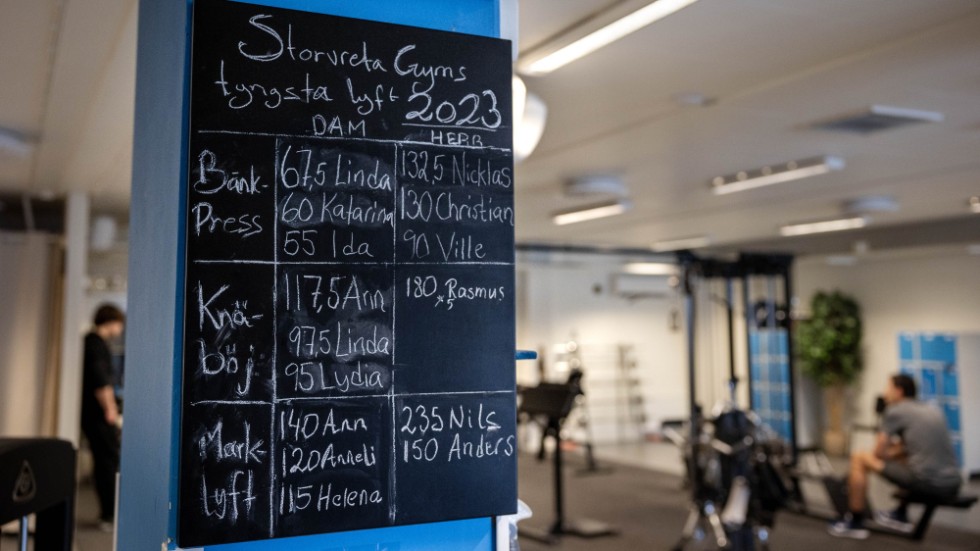 Storvreta Gyms
tyngsta lyft 2023
DAM HERR
Bänk-
Press
67,5 Linda
60 Katarina
55 Ida
132,5 Nicklas
130 Christian
90 Ville
Knä-
böj
117,5 Ann
97,5 Linda
95 Lydia
180 x5 Rasmus
Mark-
lyft
140 Ann
120 Anneli
115 Helena
235 Nils
150 Anders